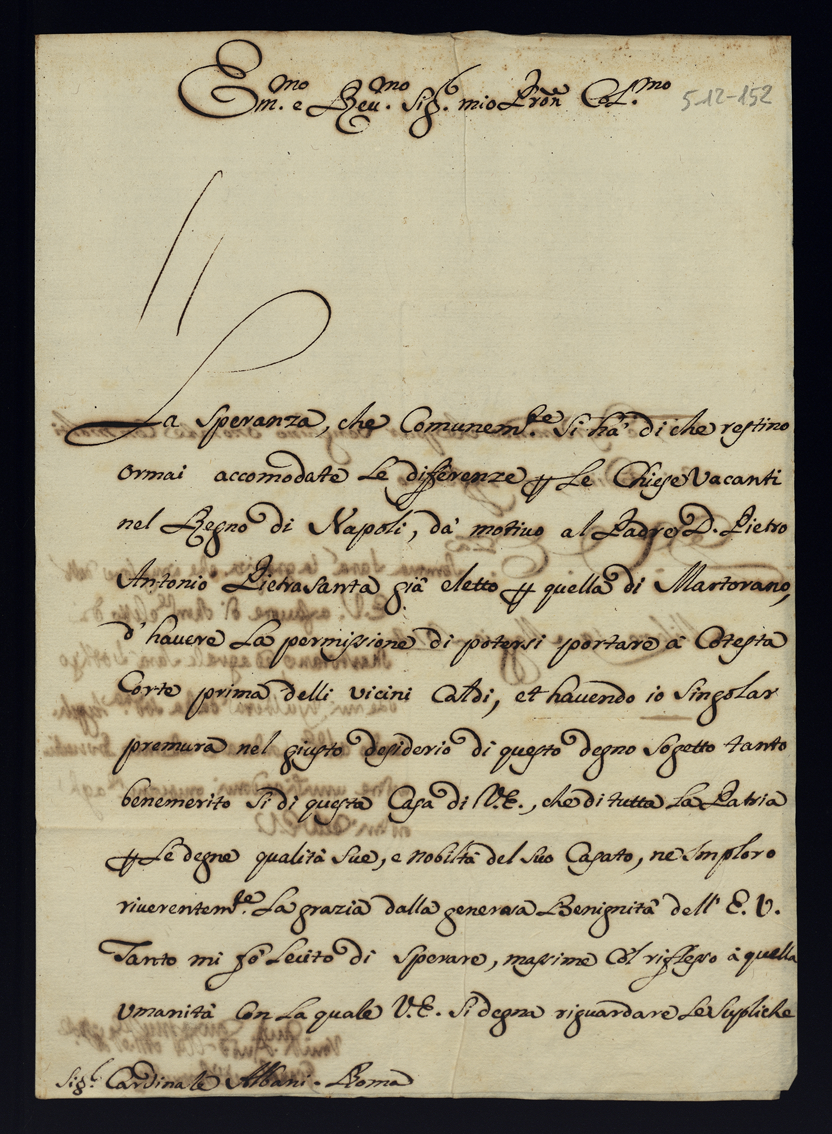 Em.mo e Reu.mo Sig.r mio Pron Col.mo
5-12-152
La Speranza, che Comunem.te si hà di che restino
ormai accomodate Le differenze p Le Chiese Vacanti
nel Regno di Napoli, dà motivo al Padre D. Pietro
Antonio Pietrasanta già eletto p quella di Martorano,
d'havere La permissione di potersi portare à Cotesta
Corte prima delli vicini Caldi, et havendo io Singolar
premura nel giusto desiderio di questo degno Sogetto tanto
benemerito Si di questa Casa di V.E., che di tutta La Patria
p Le degne qualità Sue, e nobiltà del Suo Casato, ne Imploro
riverentem.te La grazia dalla generosa Benignità dell' E.V.
Tanto mi fò Lecito di Sperare, massime Col riflesso à quella
Vmanità Con La quale V.E. Si degna riguardare Le Supliche
Sig.r Cardinale Albani. Roma